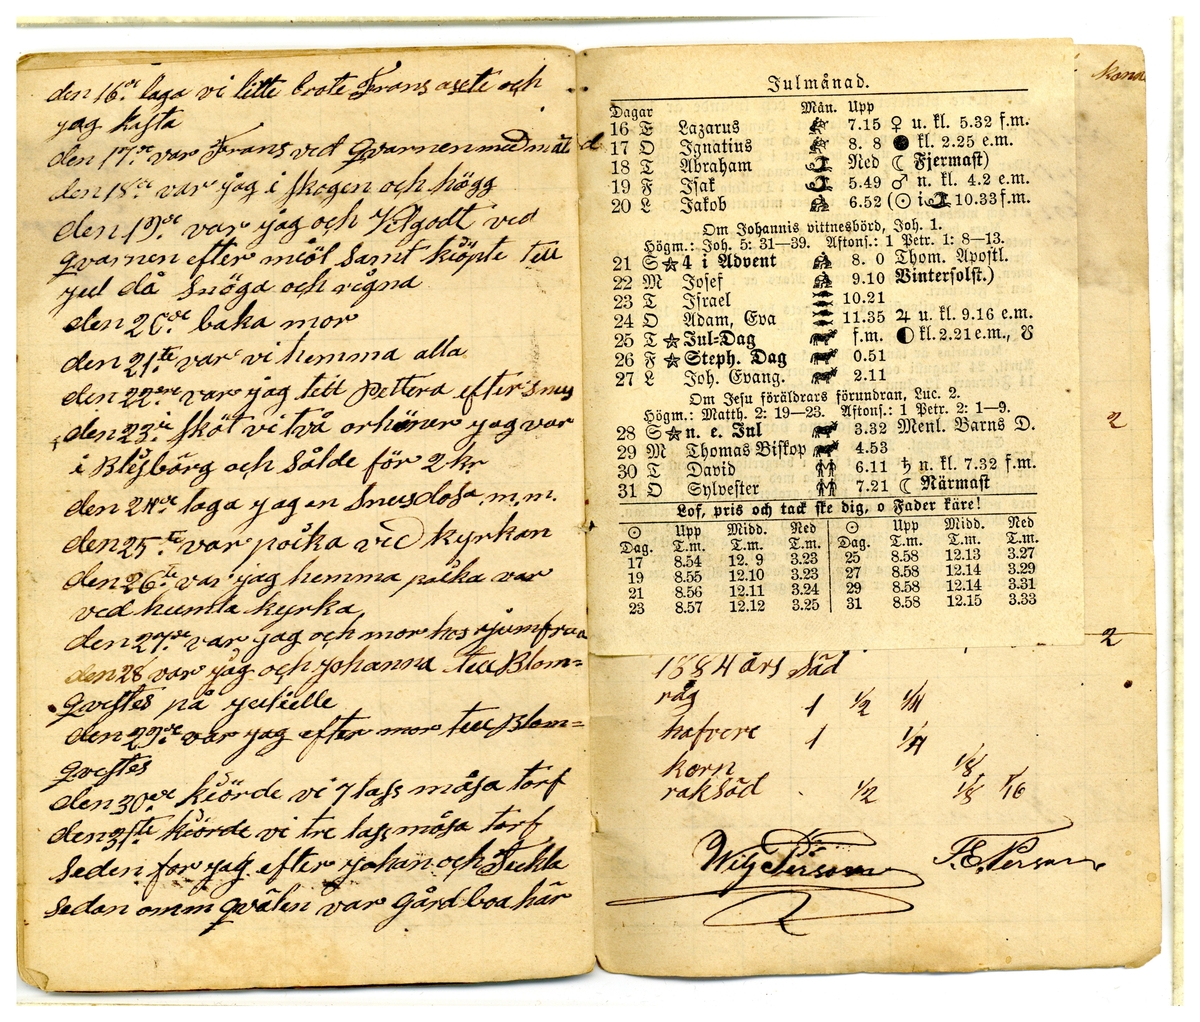 den 16de laga vi litte brote Frans aset och
jag kista
den 17de var Frans ved qvarnen med mäld
den 18de var jag i skogen och högg
den 19de var jag och Vilgodt ved
qvarnen efter miöl samt kiöpte till
jul då snöga och rigna
den 20de baka mor
den 21te var vi hemma alla
den 22dre var jag till Pettera efter snus
den 23i sköt vi två orhöner jag var
i Blisbärg och sålde för 2 kr
den 24de laga jag en snusdosa m.m.
den 25te var poika ved kyrkan
den 26te var jag hemma poika var
ved humla kyrka
den 27de var jag och mor hos jumfrua
den 28 var jag och Johanna till Blom=
qvistes på julielle
den 29de var jag efter mor till Blom=
qvistes
den 30de kiörde vi 7 lass måsa torf
den 31ste kiörde vi tre lass måsa torf
seden for jag efter Johan och Teckla
sedan omm qvälen var gårdboa här
Julmånad.
Dagar Mån. Upp
16 T Lazarus 7.15 ♀ u. kl. 5.32 f.m.
17 O Ignatius 8. 8 ● kl. 2.25 e.m.
18 T Abraham Ned ☾ Fjermast)
19 F Isak 5.49 ♂ n. kl. 4.2 e.m.
20 L Jakob 6.52 (☉ i ♑ 10.33 f.m.
Om Johannis vittnesbörd, Joh. 1.
Högm.: Joh. 5: 31—39. Aftons.: 1 Petr. 1: 8—13.
21 S ★ 4 i Advent 8. 0 Thom. Apostl.
22 M Josef 9.10 Vintersolst.)
23 T Israel 10.21
24 O Adam, Eva 11.35 ♃ u. kl. 9.16 e.m.
25 T ★ Jul-Dag f.m. ◐ kl. 2.21 e.m., ☋
26 F ★ Steph. Dag 0.51
27 L Joh. Evang. 2.11
Om Jesu föräldrars förundran, Luc. 2.
Högm.: Matth. 2: 19—23. Aftons.: 1 Petr. 2: 1—9.
28 S ★ n. e. Jul 3.32 Menl. Barns D.
29 M Thomas Biskop 4.53
30 T David 6.11 ♄ n. kl. 7.32 f.m.
31 O Sylvester 7.21 ☾ Närmast
Lof, pris och tack ske dig, o Fader käre!
☉ Upp Midd. Ned ☉ Upp Midd. Ned
Dag. T.m. T.m. T.m. Dag. T.m. T.m. T.m.
17 8.54 12. 9 3.23 25 8.58 12.13 3.27
19 8.55 12.10 3.23 27 8.58 12.14 3.29
21 8.56 12.11 3.24 29 8.58 12.14 3.31
23 8.57 12.12 3.25 31 8.58 12.15 3.33
2
2
1884 års säd
råg 1 1/2 1/4
hafvere 1 1/4
korn 1/8
raksäd 1/2 1/8 1/16